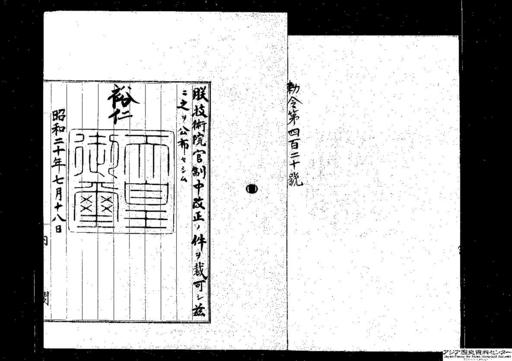 勅令第四百二十號
朕技術院官制中改正ノ件ヲ裁可シ茲
ニ之ヲ公布セシム
裕仁
天皇御璽
昭和二十年七月十八日
内閣
アジア歴史資料センター